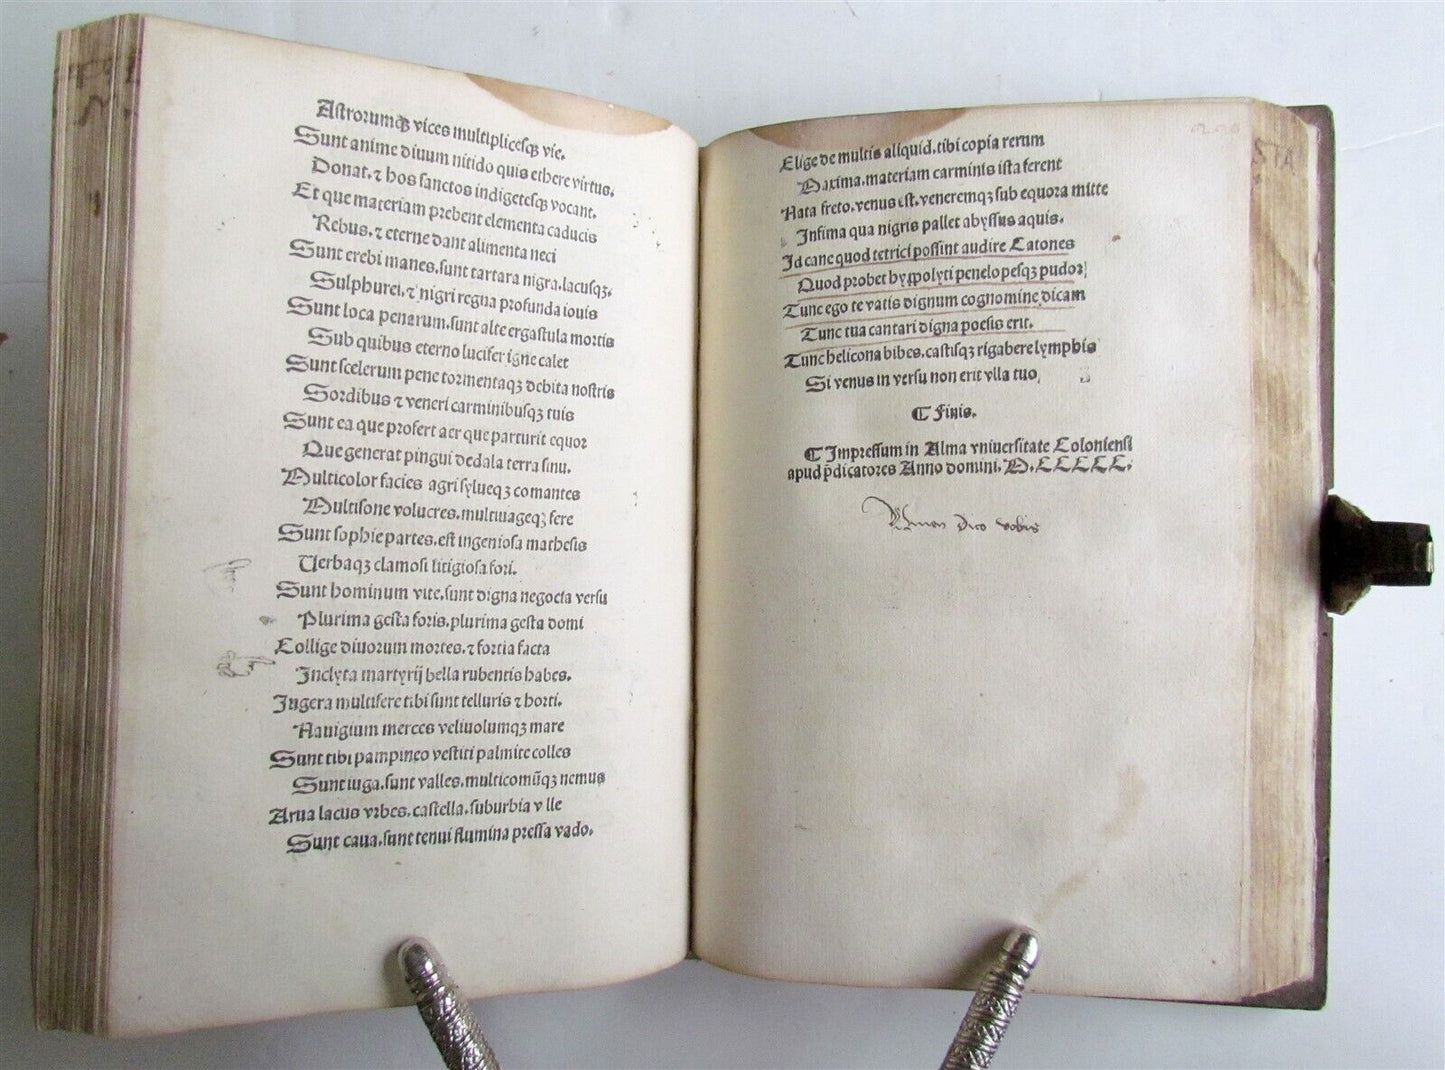 Astrorumqꝫ vices multiplicesqꝫ vie.
Sunt anime diuum nitido quis ethere virtus.
Donat. ⁊ hos sanctos indigetesqꝫ vocant.
Et que materiam prebent elementa caducis
Rebus. ⁊ eterne dant alimenta neci
Sunt erebi manes. sunt tartara nigra. lacusqꝫ.
Sulphurei. ⁊ nigri regna profunda iouis
Sunt loca penarum. sunt alte ergastula mortis
Sub quibus eterno lucifer igne calet
Sunt scelerum pene tormentaqꝫ debita nostris
Sordibus ⁊ veneri carminibusqꝫ tuis
Sunt ea que profert aer que parturit equor
Que generat pingui dedala terra sinu.
Multicolor facies agri sylueqꝫ comantes
Multisone volucres. multiuageqꝫ fere
Sunt sophie partes. est ingeniosa mathesis
Verbaqꝫ clamosi litigiosa fori.
Sunt hominum vite. sunt digna negocia versu
Plurima gesta foris. plurima gesta domi
Collige diuorum mortes. ⁊ fortia facta
Inclyta martyrij bella rubentis habes.
Iugera multifere tibi sunt telluris ⁊ horti.
Nauigium merces veliuolumqꝫ mare
Sunt tibi pampineo vestiti palmite colles
Sunt iuga. sunt valles. multicomūqꝫ nemus
Arua lacus vrbes. castella. suburbia v lle
Sunt caua. sunt tenui flumina pressa vado.
Elige de multis aliquid. tibi copia rerum
Maxima. materiam carminis ista ferent
Nata freto. venus est. veneremqꝫ sub equora mitte
Infima qua nigris pallet abyssus aquis.
Id cane quod tetrici possint audire Catones
Quod probet hyppolyti penelopesqꝫ pudor
Tunc ego te vatis dignum cognomine dicam
Tunc tua cantari digna poesis erit.
Tunc helicona bibes. castisqꝫ rigabere lymphis
Si venus in versu non erit vlla tuo
¶ Finis.
¶ Impressum in Alma vniuersitate Coloniensi
apud p̄dicatores Anno domini. M. CCCCC.
Amen dico vobis